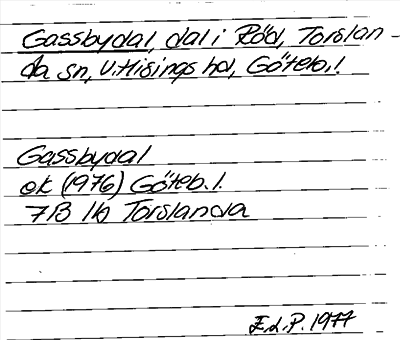 Gassbydal, dal i Röd, Torslan-
da sn, V.Hisings hd, Göteb.l.
Gassbydal
ek (1976) Göteb.l.
7B 1b Torslanda
E.L.P. 1977